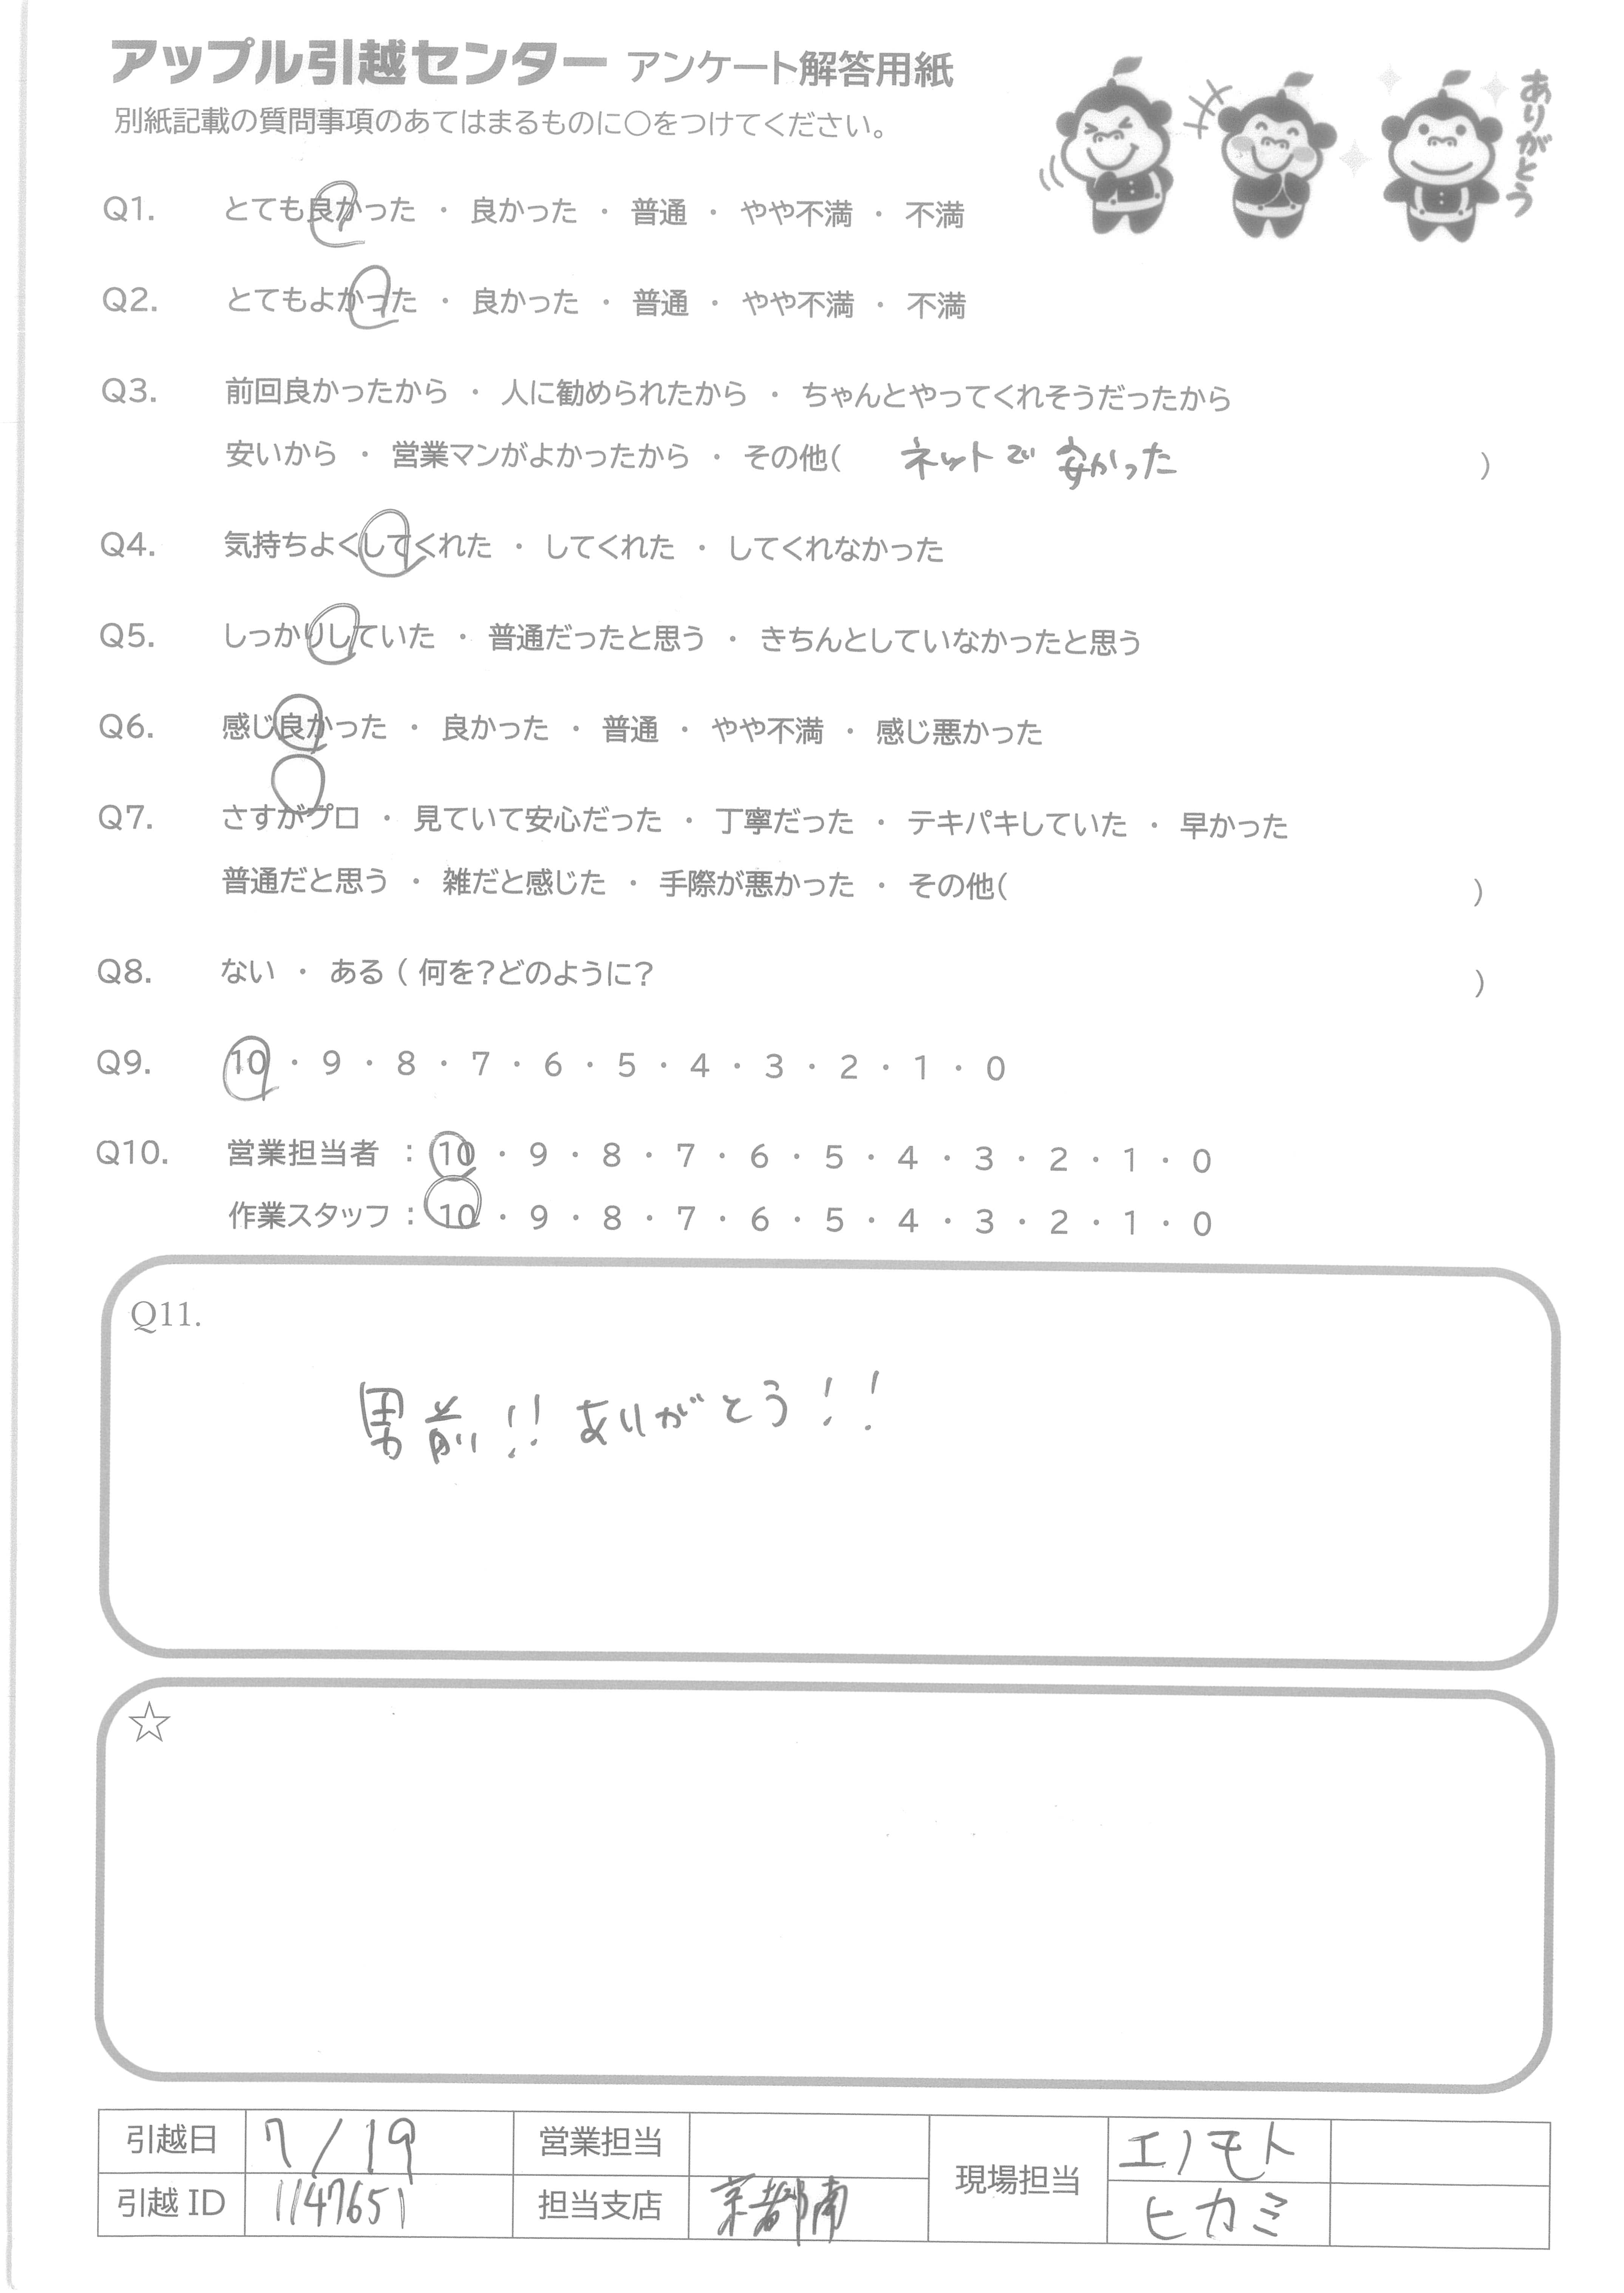 アップル引越センター アンケート解答用紙
別紙記載の質問事項のあてはまるものに○をつけてください。
ありがとう
Q1. とても良かった ・ 良かった ・ 普通 ・ やや不満 ・ 不満
Q2. とてもよかった ・ 良かった ・ 普通 ・ やや不満 ・ 不満
Q3. 前回良かったから ・ 人に勧められたから ・ ちゃんとやってくれそうだったから
安いから ・ 営業マンがよかったから ・ その他( ネットで 安かった )
Q4. 気持ちよくしてくれた ・ してくれた ・ してくれなかった
Q5. しっかりしていた ・ 普通だったと思う ・ きちんとしていなかったと思う
Q6. 感じ良かった ・ 良かった ・ 普通 ・ やや不満 ・ 感じ悪かった
Q7. さすがプロ ・ 見ていて安心だった ・ 丁寧だった ・ テキパキしていた ・ 早かった
普通だと思う ・ 雑だと感じた ・ 手際が悪かった ・ その他( )
Q8. ない ・ ある ( 何を?どのように? )
Q9. 10 ・ 9 ・ 8 ・ 7 ・ 6 ・ 5 ・ 4 ・ 3 ・ 2 ・ 1 ・ 0
Q10. 営業担当者 : 10 ・ 9 ・ 8 ・ 7 ・ 6 ・ 5 ・ 4 ・ 3 ・ 2 ・ 1 ・ 0
作業スタッフ : 10 ・ 9 ・ 8 ・ 7 ・ 6 ・ 5 ・ 4 ・ 3 ・ 2 ・ 1 ・ 0
Q11.
男前!! ありがとう!!
☆
引越日 7/19 営業担当 現場担当 エノモト
引越 ID 1147651 担当支店 京都南 ヒカミ